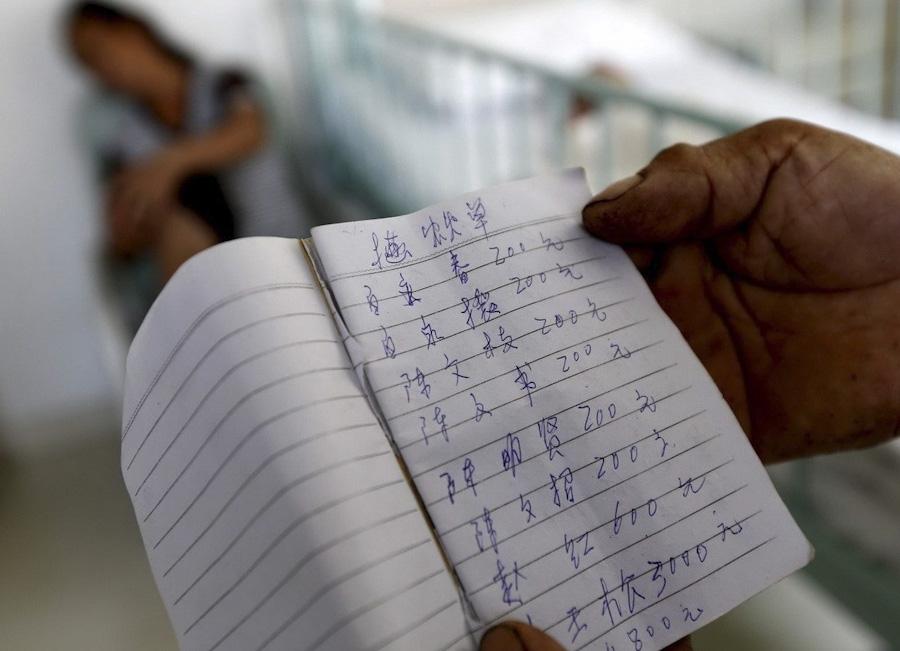 捐款单
白永春 200元
白永 200元
陈文枝 200元
陈文书 200元
陈明贤 200元
陈文招 200元
赵红 600元
玉松 3000元
800元